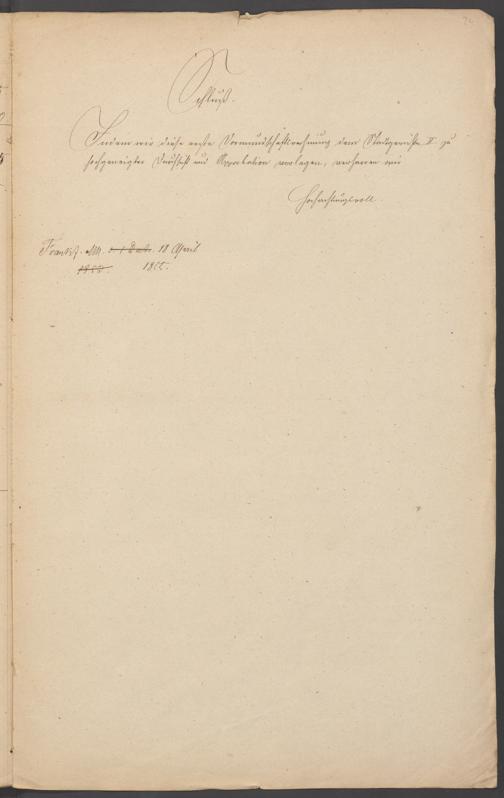 24
Schluß.
Indem wir diese erste Vormundschaftsrechnung dem Stadtgerichte II zu
hochgeneigter Durchsicht und Approbation vorlegen, verharren wir
Hochachtungsvoll
Frankf. a/M. 18 April
1855.